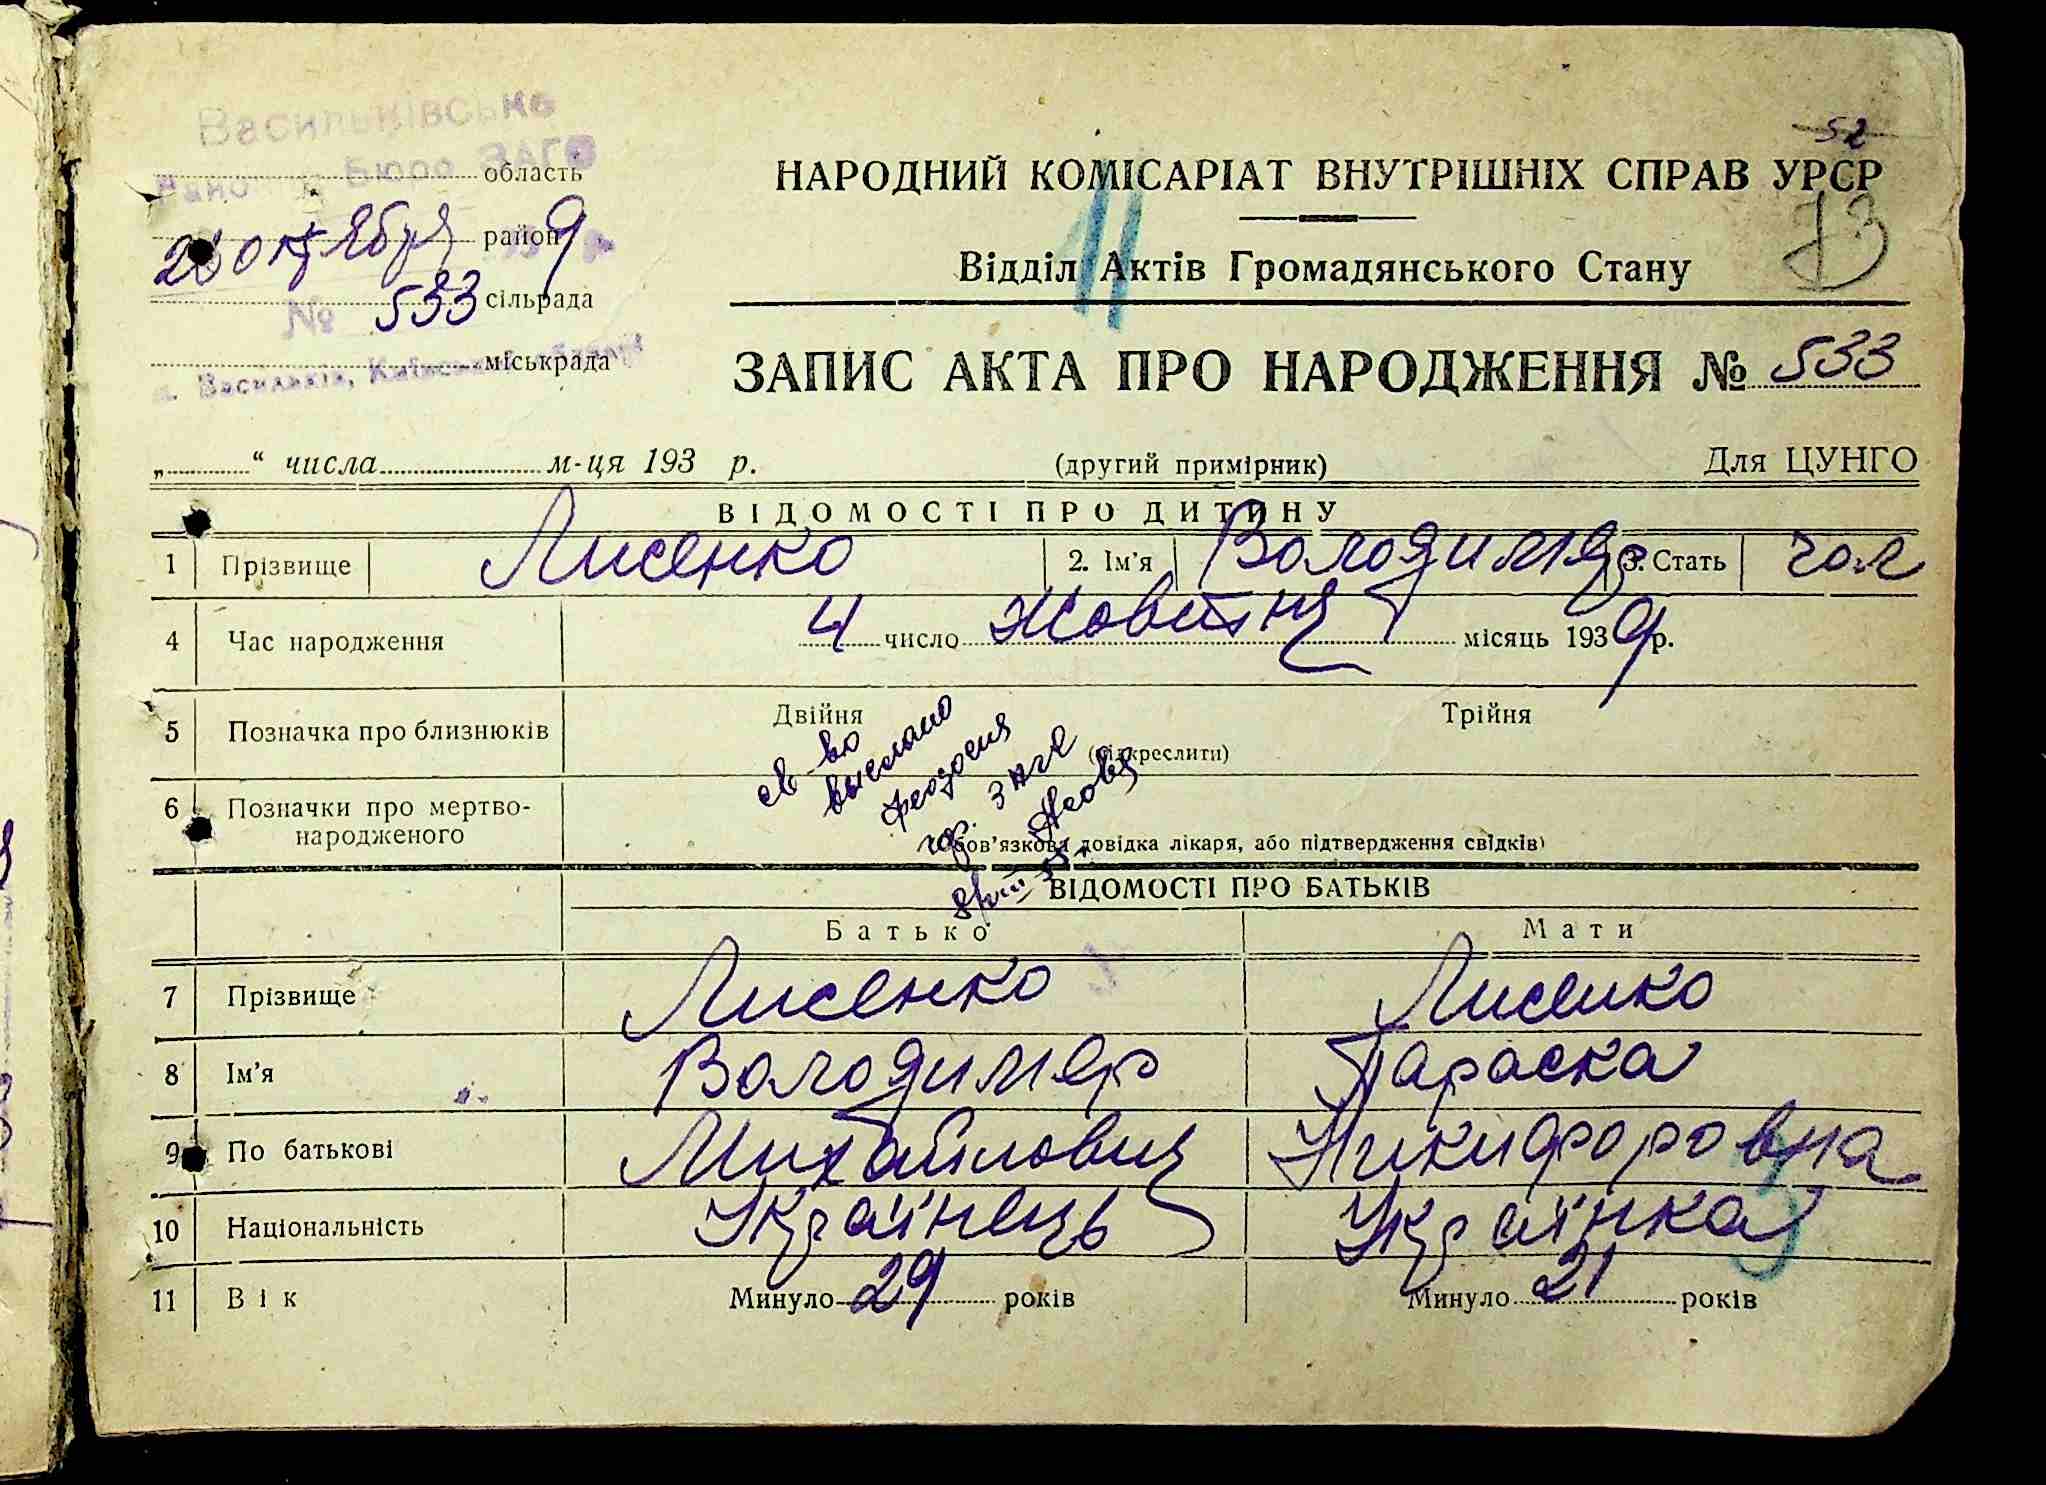 52
Васильківське
Бюро ЗАГС
область
НАРОДНИЙ КОМІСАРІАТ ВНУТРІШНІХ СПРАВ УРСР
73
11
октября район 9
Відділ Актів Громадянського Стану
№ 533 сільрада
міськрада
м. Васильків, Київської області
ЗАПИС АКТА ПРО НАРОДЖЕННЯ № 533
„ “ числа м-ця 193 р. (другий примірник) Для ЦУНГО
ВІДОМОСТІ ПРО ДИТИНУ
1 Прізвище Лисенко 2. Ім'я Володимир 3. Стать чол
4 Час народження 4 число Жовтня місяць 1939 р.
5 Позначка про близнюків Двійня Трійня
(підкреслити)
св-во
выслано
Феодосия
гор. ЗАГС
6 Позначки про мертво-
народженого
(обов'язкова довідка лікаря, або підтвердження свідків)
ВІДОМОСТІ ПРО БАТЬКІВ
Батько Мати
7 Прізвище Лисенко Лисенко
8 Ім'я Володимер Параска
9 По батькові Михайлович Никифоровна
10 Національність Українець Українка
11 Вік Минуло 29 років Минуло 21 років